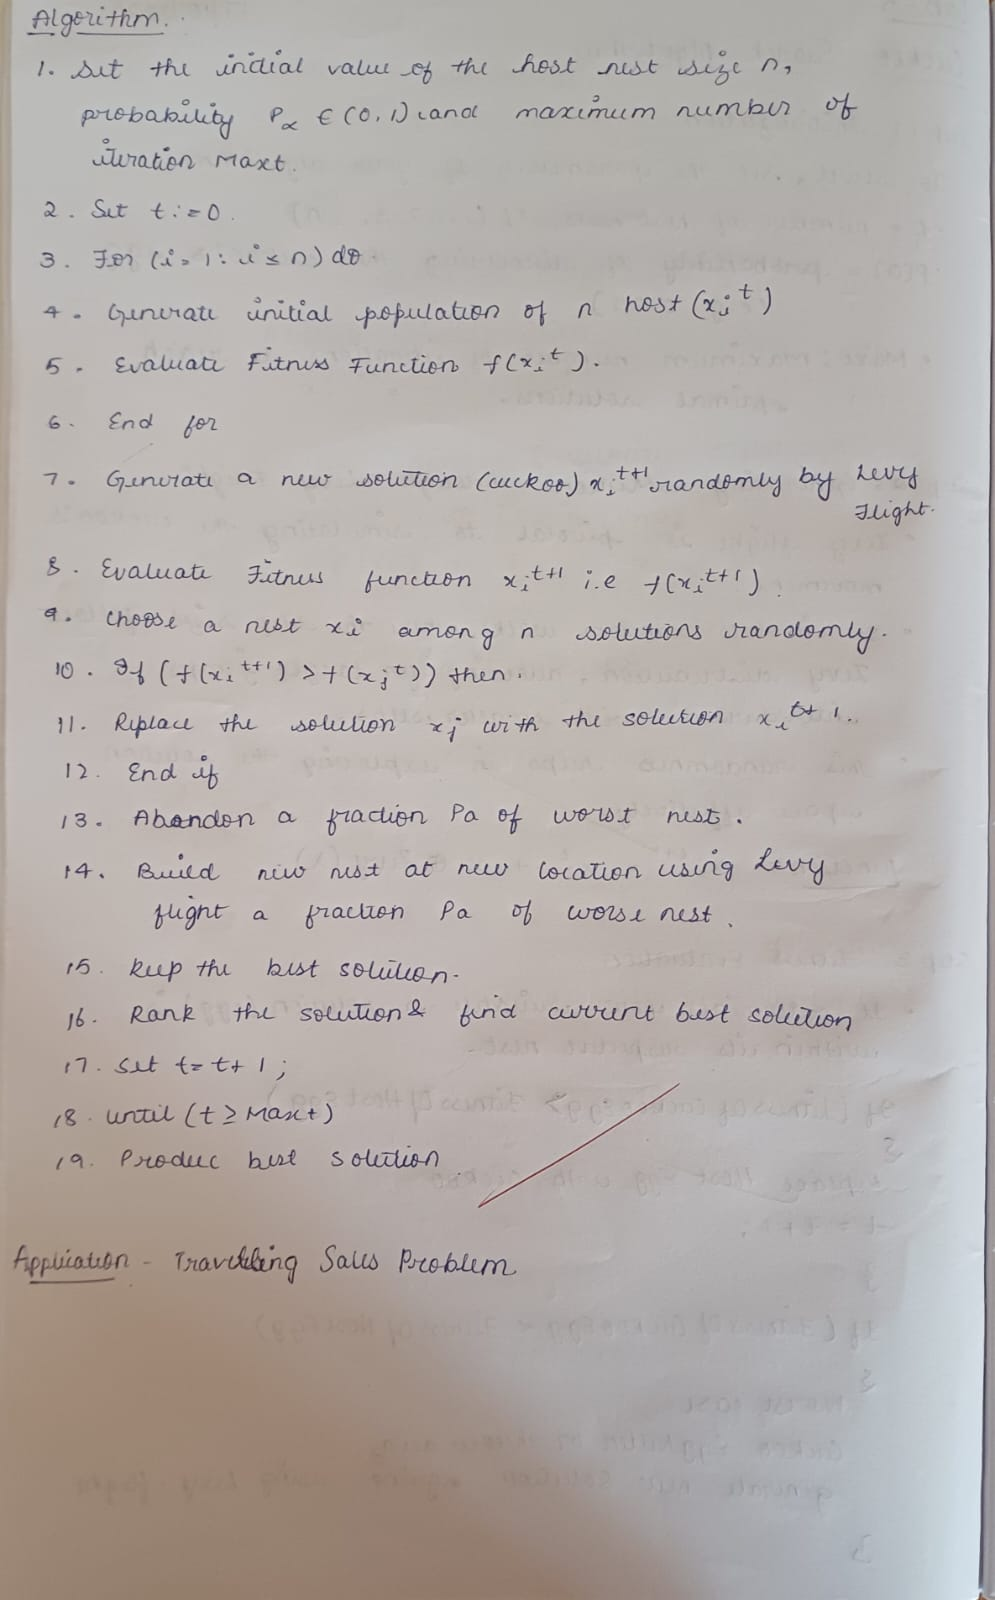 Algorithm.
1. Set the initial value of the host nest size n,
probability P∝ ∈ (0,1) and maximum number of
iteration Maxt.
2. Set t:=0.
3. For (i=1: i≤n) do
4. Generate initial population of n host (xᵢᵗ)
5. Evaluate Fitness Function f(xᵢᵗ).
6. End for
7. Generate a new solution (cuckoo) xᵢᵗ⁺¹ randomly by Levy
Flight.
8. Evaluate Fitness function xᵢᵗ⁺¹ i.e f(xᵢᵗ⁺¹)
9. Choose a nest xi among n solutions randomly.
10. If (f(xᵢᵗ⁺¹) > f(xⱼᵗ)) then.
11. Replace the solution xⱼ with the solution xᵢᵗ⁺¹.
12. End if
13. Abandon a fraction Pa of worst nest.
14. Build new nest at new location using Levy
flight a fraction Pa of worse nest.
15. Keep the best solution.
16. Rank the solution & find current best solution
17. Set t=t+1;
18. until (t≥Maxt)
19. Produc best solution
Application - Travelling Sales Problem